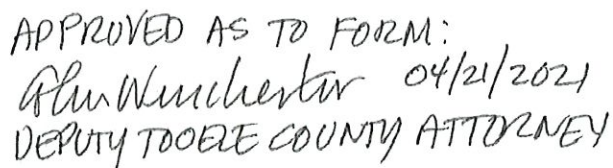 APPROVED AS TO FORM:
Winchester 04/21/2021
DEPUTY TOOELE COUNTY ATTORNEY